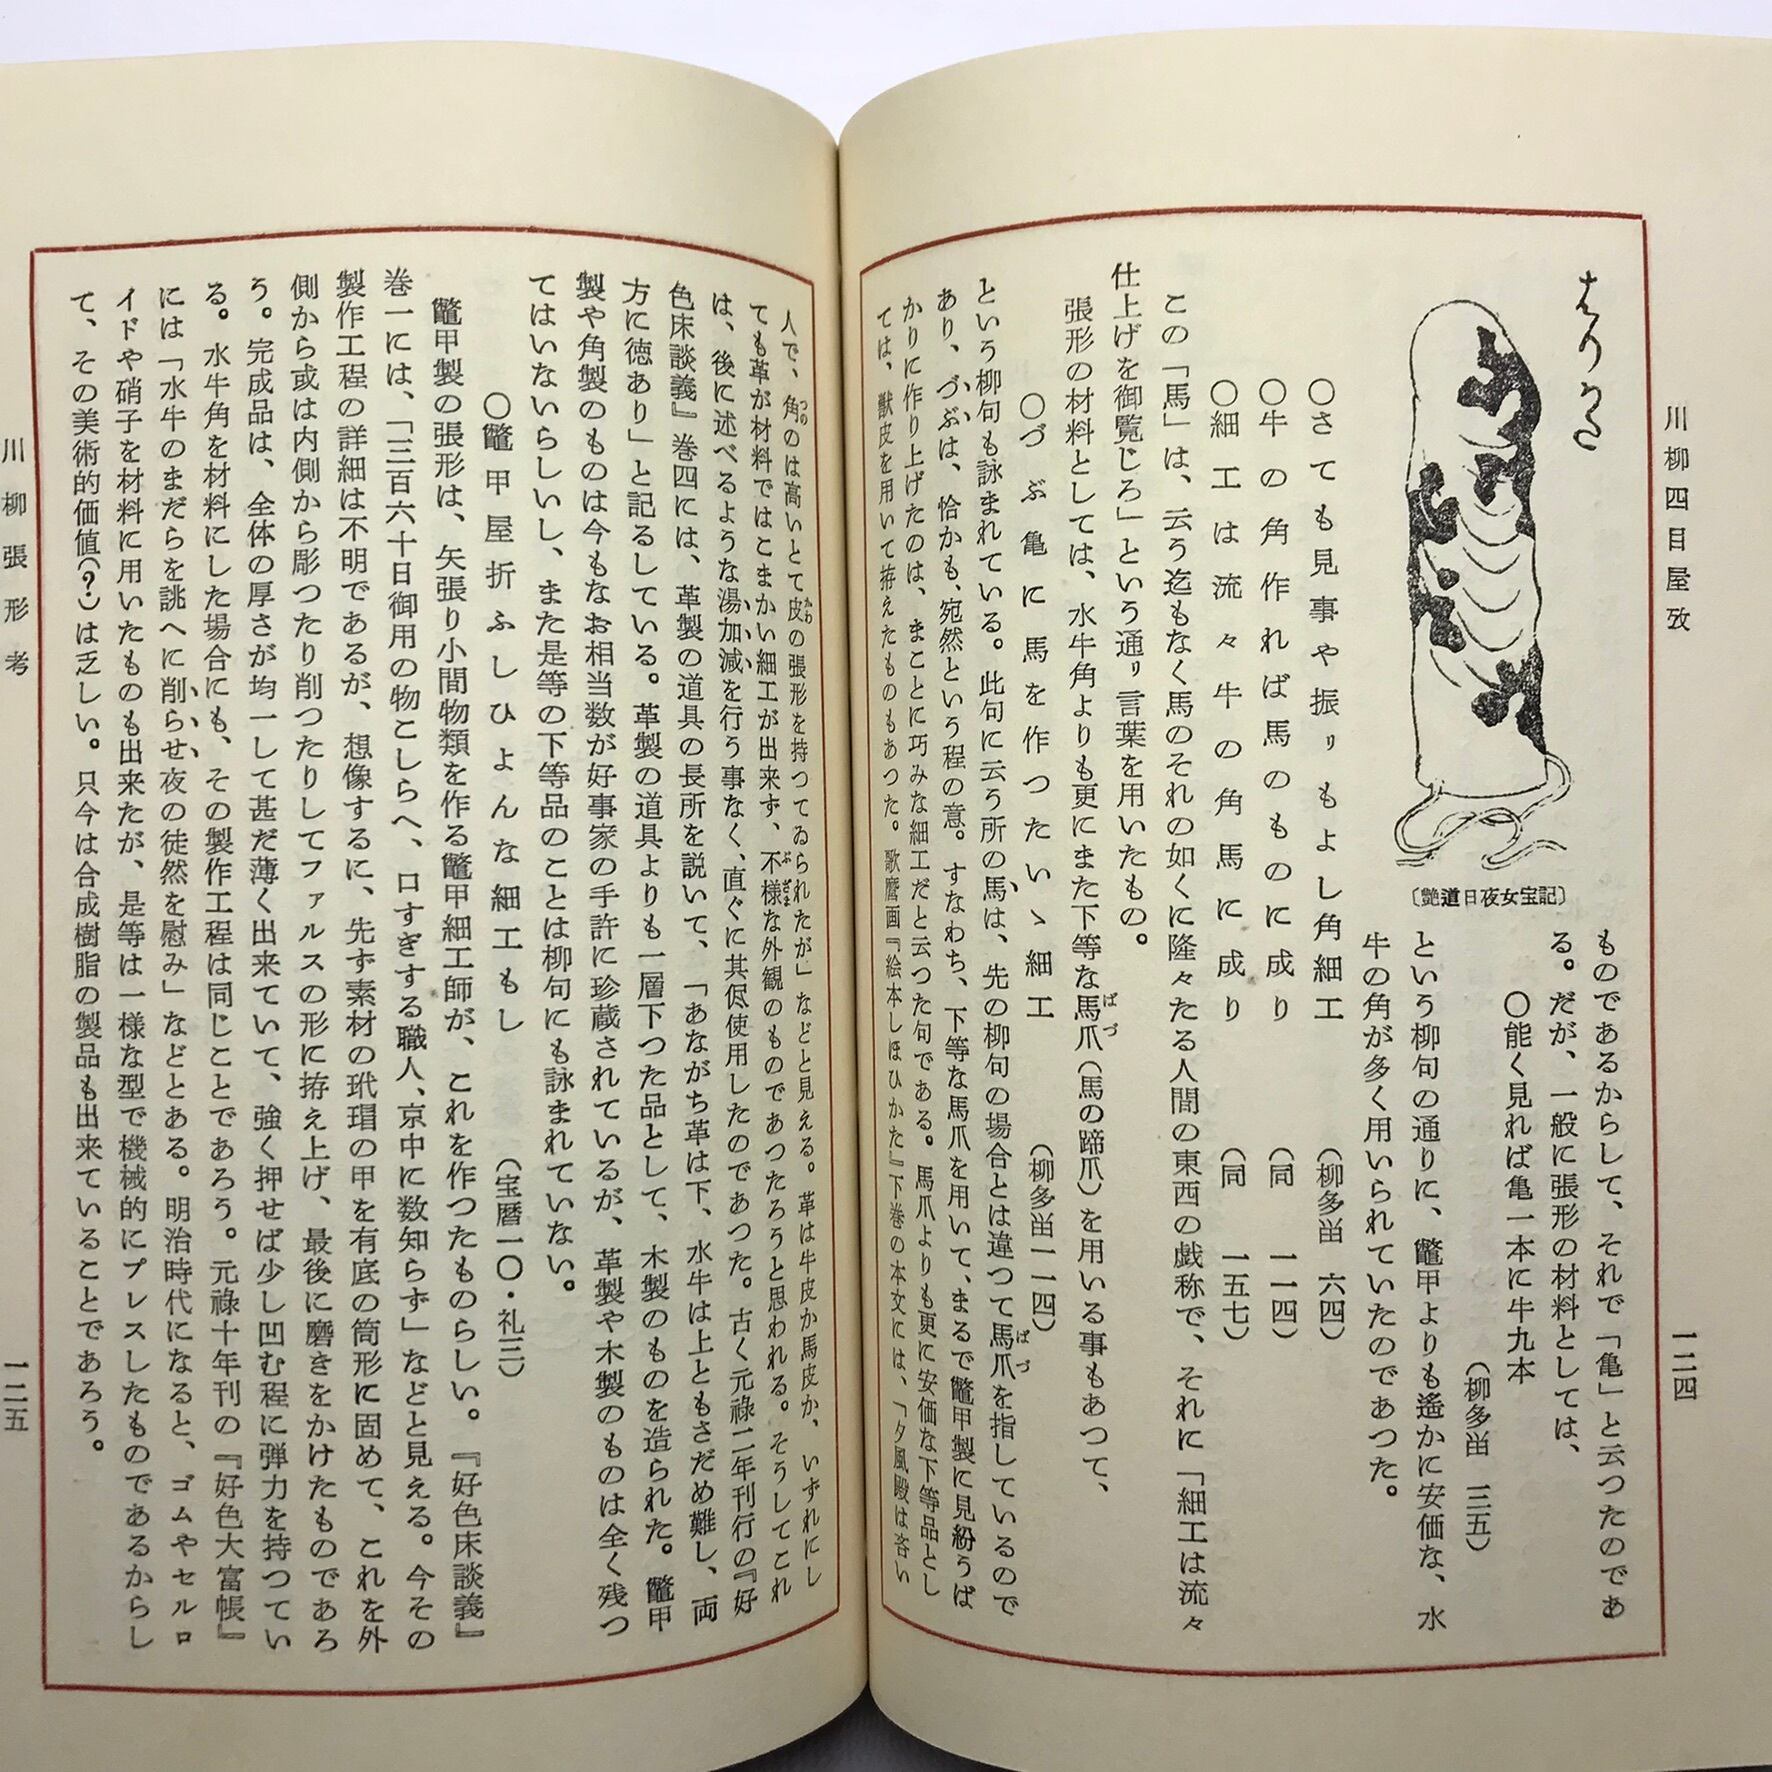 川柳四目屋攷
一二四
はりかた
〔艶道日夜女宝記〕
ものであるからして、それで「亀」と云つたのであ
る。だが、一般に張形の材料としては、
〇能く見れば亀一本に牛九本
(柳多留 三五)
という柳句の通りに、鼈甲よりも遙かに安価な、水
牛の角が多く用いられていたのであつた。
〇さても見事や振りもよし角細工 (柳多留 六四)
〇牛の角作れば馬のものに成り (同 一一四)
〇細工は流々牛の角馬に成り (同 一五七)
この「馬」は、云う迄もなく馬のそれの如くに隆々たる人間の東西の戯称で、それに「細工は流々
仕上げを御覧じろ」という通り言葉を用いたもの。
張形の材料としては、水牛角よりも更にまた下等な馬爪(馬の蹄爪)を用いる事もあつて、
〇づぶ亀に馬を作つたいゝ細工 (柳多留一一四)
という柳句も詠まれている。此句に云う所の馬は、先の柳句の場合とは違つて馬爪を指しているので
あり、づぶは、恰かも、宛然という程の意。すなわち、下等な馬爪を用いて、まるで鼈甲製に見紛うば
かりに作り上げたのは、まことに巧みな細工だと云つた句である。馬爪よりも更に安価な下等品とし
ては、獣皮を用いて拵えたものもあつた。歌麿画『絵本しほひかた』下巻の本文には、「夕風殿は吝い
人で、角のは高いとて皮の張形を持つてゐられたが」などと見える。革は牛皮か馬皮か、いずれにし
ても革が材料ではこまかい細工が出来ず、不様な外観のものであつたろうと思われる。そうしてこれ
は、後に述べるような湯加減を行う事なく、直ぐに其侭使用したのであつた。古く元祿二年刊行の『好
色床談義』巻四には、革製の道具の長所を説いて、「あながち革は下、水牛は上ともさだめ難し、両
方に徳あり」と記るしている。革製の道具よりも一層下つた品として、木製のものを造られた。鼈甲
製や角製のものは今もなお相当数が好事家の手許に珍蔵されているが、革製や木製のものは全く残つ
てはいないらしいし、また是等の下等品のことは柳句にも詠まれていない。
〇鼈甲屋折ふしひよんな細工もし (宝暦一〇・礼三)
鼈甲製の張形は、矢張り小間物類を作る鼈甲細工師が、これを作つたものらしい。『好色床談義』
巻一には、「三百六十日御用の物こしらへ、口すぎする職人、京中に数知らず」などと見える。今その
製作工程の詳細は不明であるが、想像するに、先ず素材の玳瑁の甲を有底の筒形に固めて、これを外
側から或は内側から彫つたり削つたりしてファルスの形に拵え上げ、最後に磨きをかけたものであろ
う。完成品は、全体の厚さが均一して甚だ薄く出来ていて、強く押せば少し凹む程に弾力を持つてい
る。水牛角を材料にした場合にも、その製作工程は同じことであろう。元祿十年刊の『好色大富帳』
には「水牛のまだらを誂へに削らせ夜の徒然を慰み」などとある。明治時代になると、ゴムやセルロ
イドや硝子を材料に用いたものも出来たが、是等は一様な型で機械的にプレスしたものであるからし
て、その美術的価値(?)は乏しい。只今は合成樹脂の製品も出来ていることであろう。
川柳張形考
一二五